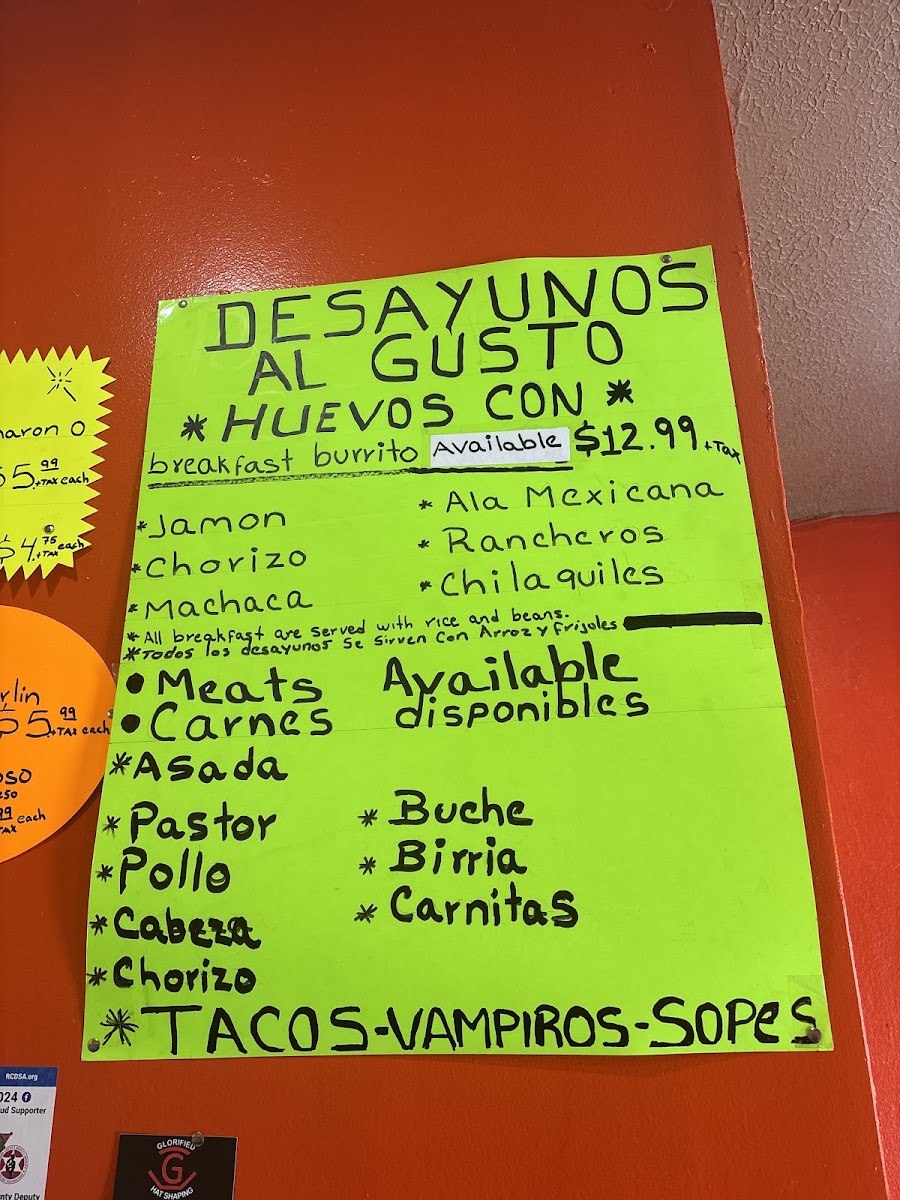 DESAYUNOS
AL GUSTO
* HUEVOS CON *
breakfast burrito Available $12.99 +Tax
* Jamon
* Chorizo
* Machaca
* Ala Mexicana
* Rancheros
* Chilaquiles
* All breakfast are served with rice and beans.
* Todos los desayunos Se Sirven Con Arroz y frijoles
• Meats Available
• Carnes disponibles
* Asada
* Pastor
* Pollo
* Cabeza
* Chorizo
* Buche
* Birria
* Carnitas
* TACOS-VAMPIROS-SOPES
$5.99 +TAX each
$4.75 +TAX each
$5.99 +TAX each
each
TAX
RCDSA.org
Supporter
Deputy
GLORIFIED
G
HAT SHAPING